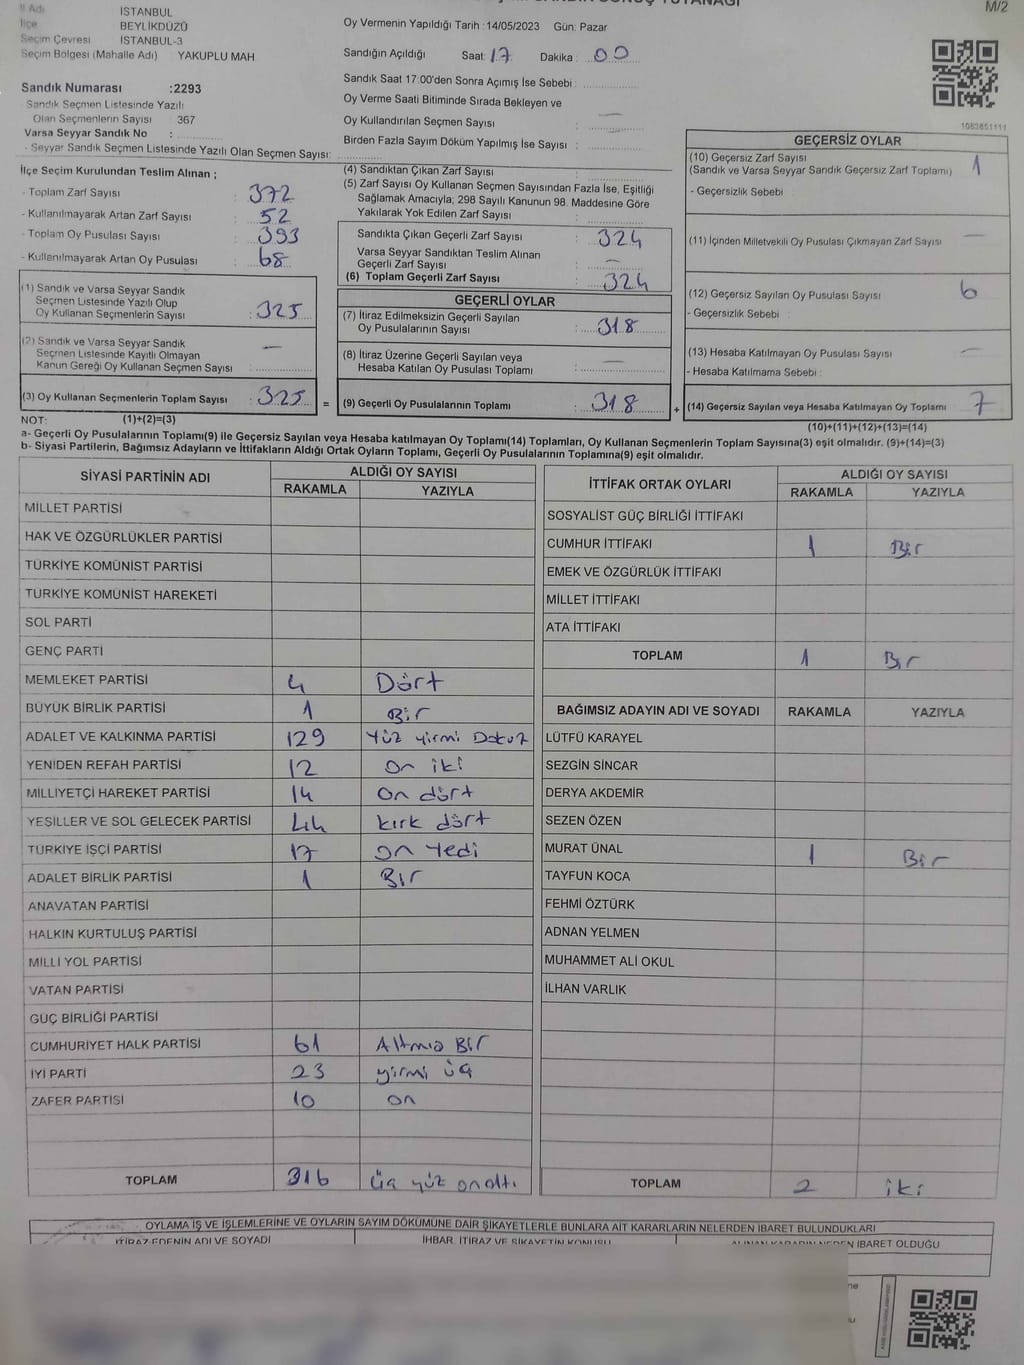 M/2
İl Adı İSTANBUL
İlçe BEYLİKDÜZÜ
Seçim Çevresi İSTANBUL-3
Seçim Bölgesi (Mahalle Adı) YAKUPLU MAH
Oy Vermenin Yapıldığı Tarih :14/05/2023 Gün: Pazar
Sandığın Açıldığı Saat: 17 Dakika : 00
Sandık Saat 17:00'den Sonra Açımış İse Sebebi :
Oy Verme Saati Bitiminde Sırada Bekleyen ve
Oy Kullandırılan Seçmen Sayısı : —
Birden Fazla Sayım Döküm Yapılmış İse Sayısı :
Sandık Numarası :2293
Sandık Seçmen Listesinde Yazılı
Olan Seçmenlerin Sayısı : 367
Varsa Seyyar Sandık No :
- Seyyar Sandık Seçmen Listesinde Yazılı Olan Seçmen Sayısı:
İlçe Seçim Kurulundan Teslim Alınan ;
- Toplam Zarf Sayısı : 372
- Kullanılmayarak Artan Zarf Sayısı : 52
- Toplam Oy Pusulası Sayısı : 393
- Kullanılmayarak Artan Oy Pusulası : 68
(1) Sandık ve Varsa Seyyar Sandık
Seçmen Listesinde Yazılı Olup
Oy Kullanan Seçmenlerin Sayısı : 325
(2) Sandık ve Varsa Seyyar Sandık
Seçmen Listesinde Kayıtlı Olmayan
Kanun Gereği Oy Kullanan Seçmen Sayısı : —
(3) Oy Kullanan Seçmenlerin Toplam Sayısı : 325 =
(4) Sandıktan Çıkan Zarf Sayısı :
(5) Zarf Sayısı Oy Kullanan Seçmen Sayısından Fazla İse, Eşitliği
Sağlamak Amacıyla; 298 Sayılı Kanunun 98. Maddesine Göre
Yakılarak Yok Edilen Zarf Sayısı :
Sandıkta Çıkan Geçerli Zarf Sayısı : 324
Varsa Seyyar Sandıktan Teslim Alınan
Geçerli Zarf Sayısı : —
(6) Toplam Geçerli Zarf Sayısı : 324
GEÇERLİ OYLAR
(7) İtiraz Edilmeksizin Geçerli Sayılan
Oy Pusulalarının Sayısı : 318
(8) İtiraz Üzerine Geçerli Sayılan veya
Hesaba Katılan Oy Pusulası Toplamı : —
(9) Geçerli Oy Pusulalarının Toplamı : 318 +
1083851111
GEÇERSİZ OYLAR
(10) Geçersiz Zarf Sayısı 1
(Sandık ve Varsa Seyyar Sandık Geçersiz Zarf Toplamı) :
- Geçersizlik Sebebi :
(11) İçinden Milletvekili Oy Pusulası Çıkmayan Zarf Sayısı —
(12) Geçersiz Sayılan Oy Pusulası Sayısı : 6
- Geçersizlik Sebebi :
(13) Hesaba Katılmayan Oy Pusulası Sayısı : —
- Hesaba Katılmama Sebebi :
(14) Geçersiz Sayılan veya Hesaba Katılmayan Oy Toplamı : 7
NOT: (1)+(2)=(3) (10)+(11)+(12)+(13)=(14)
a- Geçerli Oy Pusulalarının Toplamı(9) ile Geçersiz Sayılan veya Hesaba katılmayan Oy Toplamı(14) Toplamları, Oy Kullanan Seçmenlerin Toplam Sayısına(3) eşit olmalıdır. (9)+(14)=(3)
b- Siyasi Partilerin, Bağımsız Adayların ve İttifakların Aldığı Ortak Oyların Toplamı, Geçerli Oy Pusulalarının Toplamına(9) eşit olmalıdır.
SİYASİ PARTİNİN ADI ALDIĞI OY SAYISI
RAKAMLA YAZIYLA
MİLLET PARTİSİ
HAK VE ÖZGÜRLÜKLER PARTİSİ
TÜRKİYE KOMÜNİST PARTİSİ
TÜRKİYE KOMÜNİST HAREKETİ
SOL PARTİ
GENÇ PARTİ
MEMLEKET PARTİSİ 4 Dört
BÜYÜK BİRLİK PARTİSİ 1 Bir
ADALET VE KALKINMA PARTİSİ 129 Yüz yirmi Dokuz
YENİDEN REFAH PARTİSİ 12 On iki
MİLLİYETÇİ HAREKET PARTİSİ 14 On dört
YEŞİLLER VE SOL GELECEK PARTİSİ 44 kırk dört
TÜRKİYE İŞÇİ PARTİSİ 17 on Yedi
ADALET BİRLİK PARTİSİ 1 Bir
ANAVATAN PARTİSİ
HALKIN KURTULUŞ PARTİSİ
MİLLİ YOL PARTİSİ
VATAN PARTİSİ
GÜÇ BİRLİĞİ PARTİSİ
CUMHURİYET HALK PARTİSİ 61 Altmış Bir
İYİ PARTİ 23 yirmi üç
ZAFER PARTİSİ 10 on
TOPLAM 316 üç yüz onaltı
İTTİFAK ORTAK OYLARI ALDIĞI OY SAYISI
RAKAMLA YAZIYLA
SOSYALİST GÜÇ BİRLİĞİ İTTİFAKI
CUMHUR İTTİFAKI 1 Bir
EMEK VE ÖZGÜRLÜK İTTİFAKI
MİLLET İTTİFAKI
ATA İTTİFAKI
TOPLAM 1 Bir
BAĞIMSIZ ADAYIN ADI VE SOYADI RAKAMLA YAZIYLA
LÜTFÜ KARAYEL
SEZGİN SİNCAR
DERYA AKDEMİR
SEZEN ÖZEN
MURAT ÜNAL 1 Bir
TAYFUN KOCA
FEHMİ ÖZTÜRK
ADNAN YELMEN
MUHAMMET ALİ OKUL
İLHAN VARLIK
TOPLAM 2 iki
OYLAMA İŞ VE İŞLEMLERİNE VE OYLARIN SAYIM DÖKÜMÜNE DAİR ŞİKAYETLERLE BUNLARA AİT KARARLARIN NELERDEN İBARET BULUNDUKLARI
İTİRAZ EDENİN ADI VE SOYADI İHBAR, İTİRAZ VE ŞİKAYETİN KONUSU ALINAN KARARIN NEDEN İBARET OLDUĞU